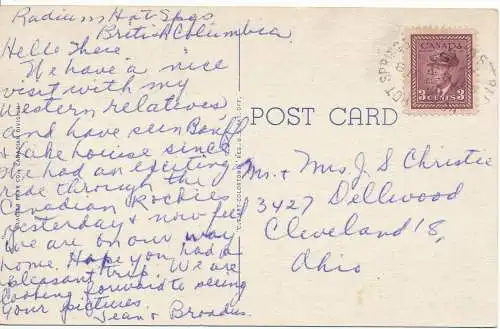 Radium Hot Spgs
British Columbia
Hello There
We have a nice
visit with my
Western relatives,
and have seen Banff
& Lake Louise since.
We had an exciting
ride through the
Canadian Rockies
yesterday & now feel
we are on our way
home. Hope you had a
pleasant trip. We are
looking forward to seeing
your pictures.
Jean & Broadus.
POST CARD
CANADA
3 CENTS 3
Mr. & Mrs. J. S. Christie
3427 Dellwood
Cleveland 18,
Ohio.